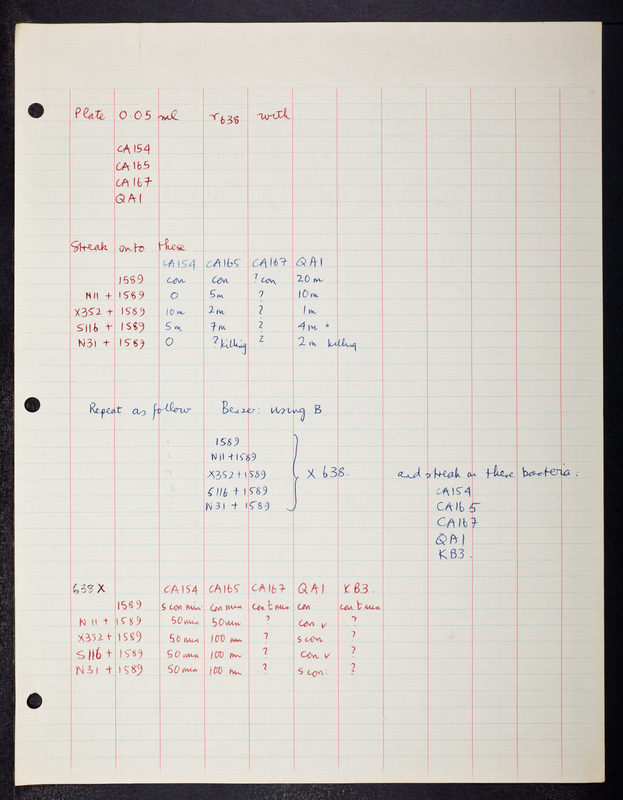 Plate 0.05 ml r638 with
CA154
CA165
CA167
QA1
Streak onto these
CA154 CA165 CA167 QA1
1589 con con ? con 20m
N11 + 1589 0 5m ? 10m
X352 + 1589 10m 2m ? 1m
S116 + 1589 5m 7m ? 4m +
N31 + 1589 0 ? killing ? 2m killing
Repeat as follow Benzer: using B
1589
N11 + 1589
X352 + 1589
S116 + 1589
N31 + 1589
X 638. and streak on these bacteria:
CA154
CA165
CA167
QA1
KB3.
638 X CA154 CA165 CA167 QA1 KB3.
1589 s con min con min con t min con con t min
N11 + 1589 50 min 50 min ? con v ?
X352 + 1589 50 min 100 min ? s con ?
S116 + 1589 50 min 100 min ? con v ?
N31 + 1589 50 min 100 min ? s con. ?